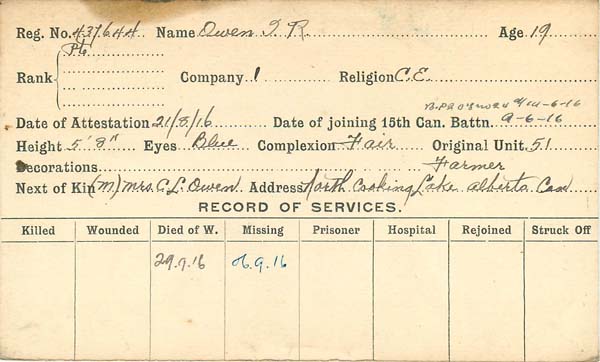 Reg. No. 437644 Name Owen I. R. Age 19
Pte
Rank Company 1 Religion C.E.
14-6-16
Date of Attestation 21/8/16 Date of joining 15th Can. Battn. 9-6-16
Height 5' 8" Eyes Blue Complexion Fair Original Unit 51
Decorations Farmer
Next of Kin (M) Mrs. C. L. Owen Address North Cooking Lake Alberta Can
RECORD OF SERVICES.
Killed Wounded Died of W. Missing Prisoner Hospital Rejoined Struck Off
29.9.16 26.9.16